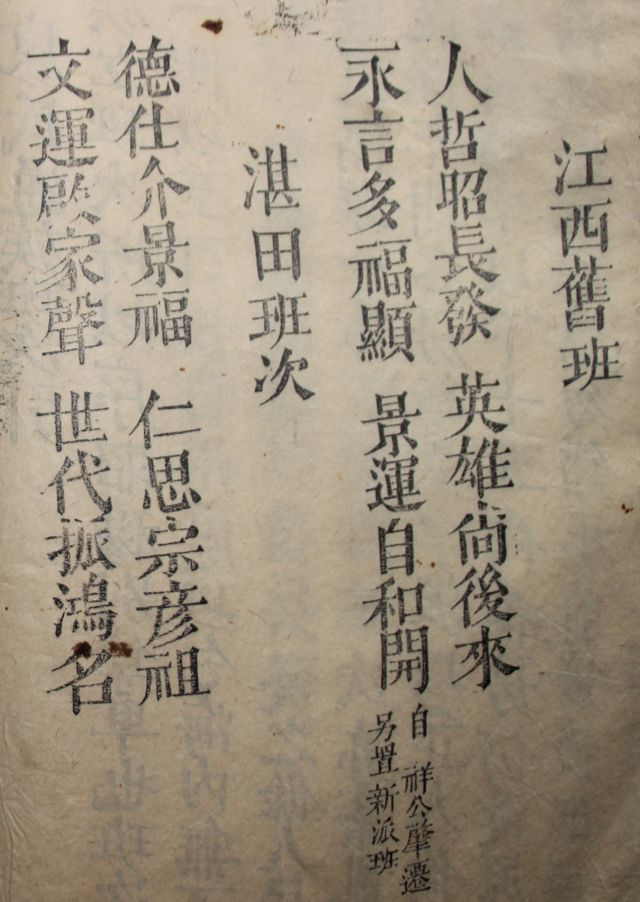 江西舊班
人哲昭長發 英雄尚後來
永言多福顯 景運自和開
自 祥公肇遷
另置新派班
湛田班次
德仕介景福 仁思宗彦祖
文運啟家聲 世代振鴻名